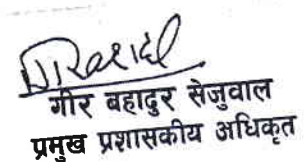 गीर बहादुर सेजुवाल
प्रमुख प्रशासकीय अधिकृत